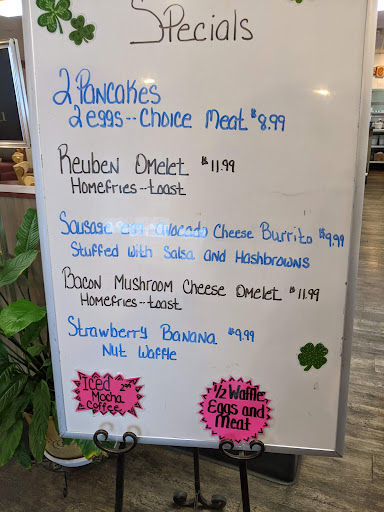 Specials
2 Pancakes
2 eggs -- Choice Meat $8.99
Reuben Omelet $11.99
Homefries -- toast
Sausage avocado Cheese Burrito $9.99
Stuffed with Salsa and Hashbrowns
Bacon Mushroom Cheese Omelet $11.99
Homefries -- toast
Strawberry Banana $9.99
Nut Waffle
Iced
Mocha
Coffee
1/2 Waffle
Eggs and
Meat